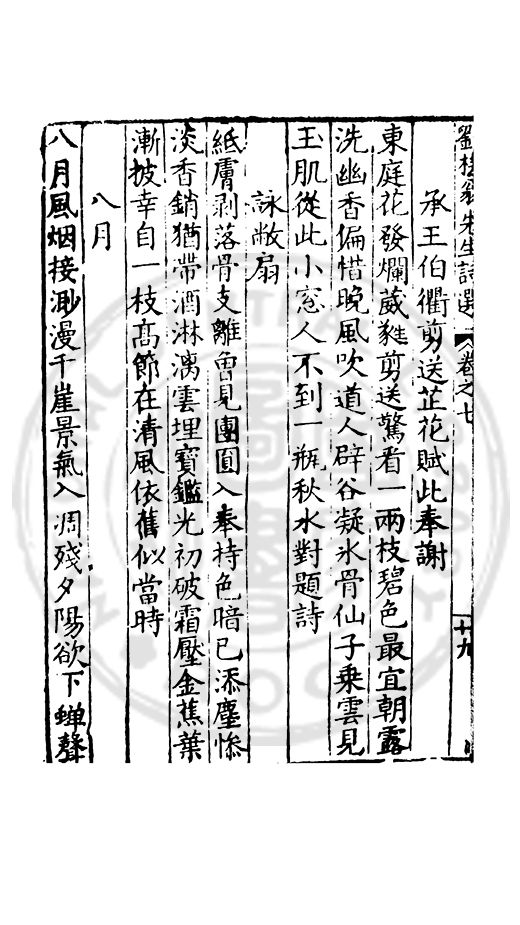 劉樵翁先生詩選 卷之七 十九
承王伯衢剪送芷花賦此奉謝
東庭花發爛葳甤剪送驚看一兩枝碧色最宜朝露
洗幽香偏惜晚風吹道人辟谷凝氷骨仙子乘雲見
玉肌從此小窓人不到一瓶秋水對題詩
詠敝扇
紙膚剥落骨支離曽見團圎入奉持色暗已添塵惨
淡香銷猶帶酒淋漓雲埋寳鑑光初破霜壓金蕉葉
漸披幸自一枝髙節在清風依舊似當時
八月
八月風烟接渺漫千崖景氣入凋殘夕陽欲下蟬聲